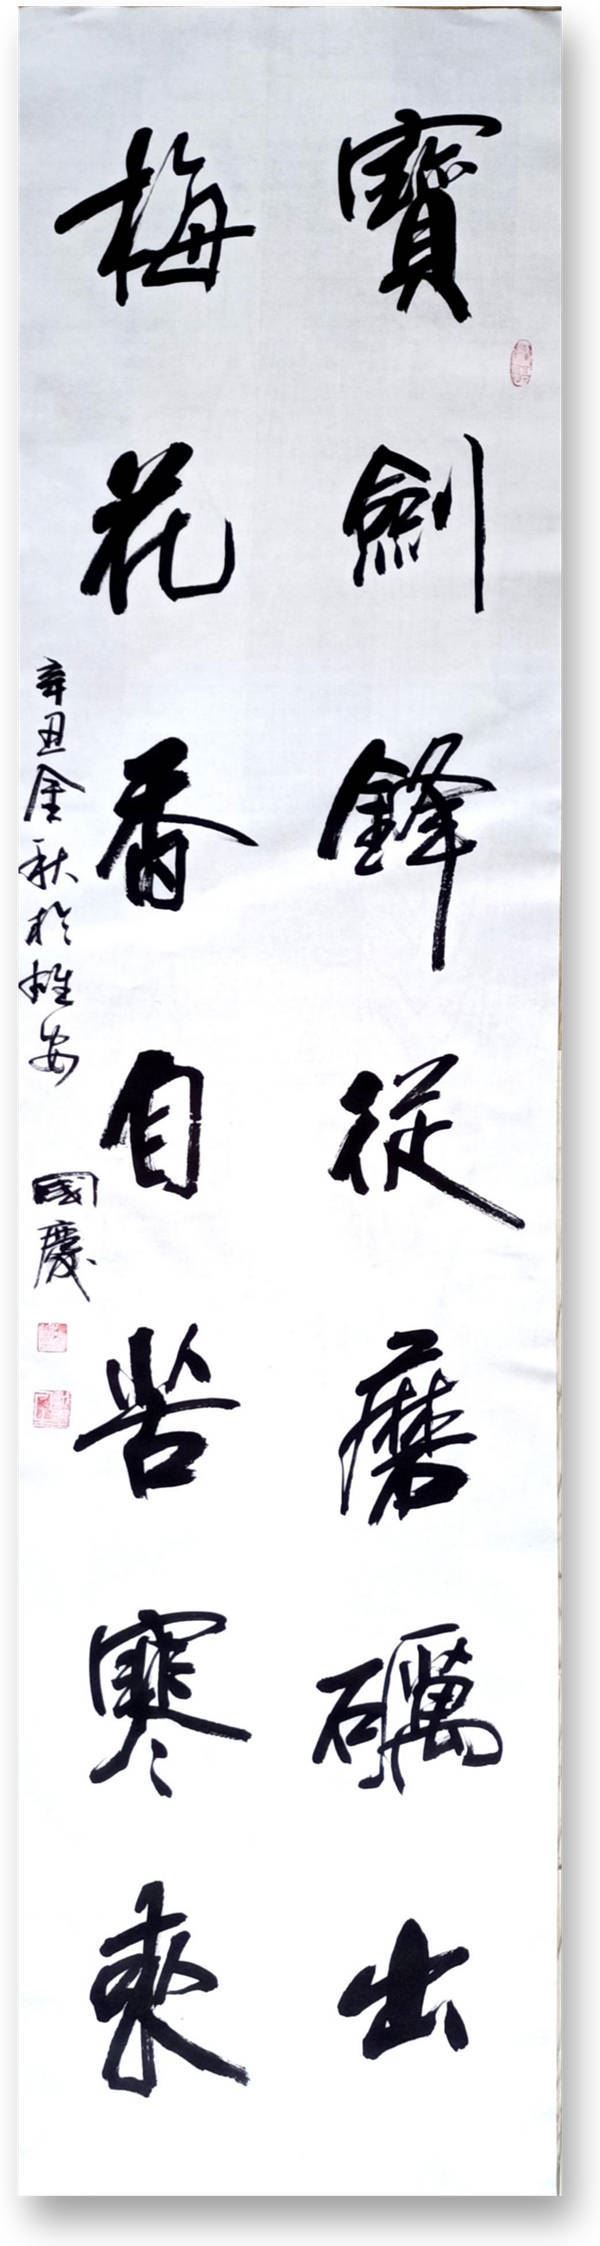 寶劍鋒從磨礪出
梅花香自苦寒來
辛丑金秋於雄安
國慶